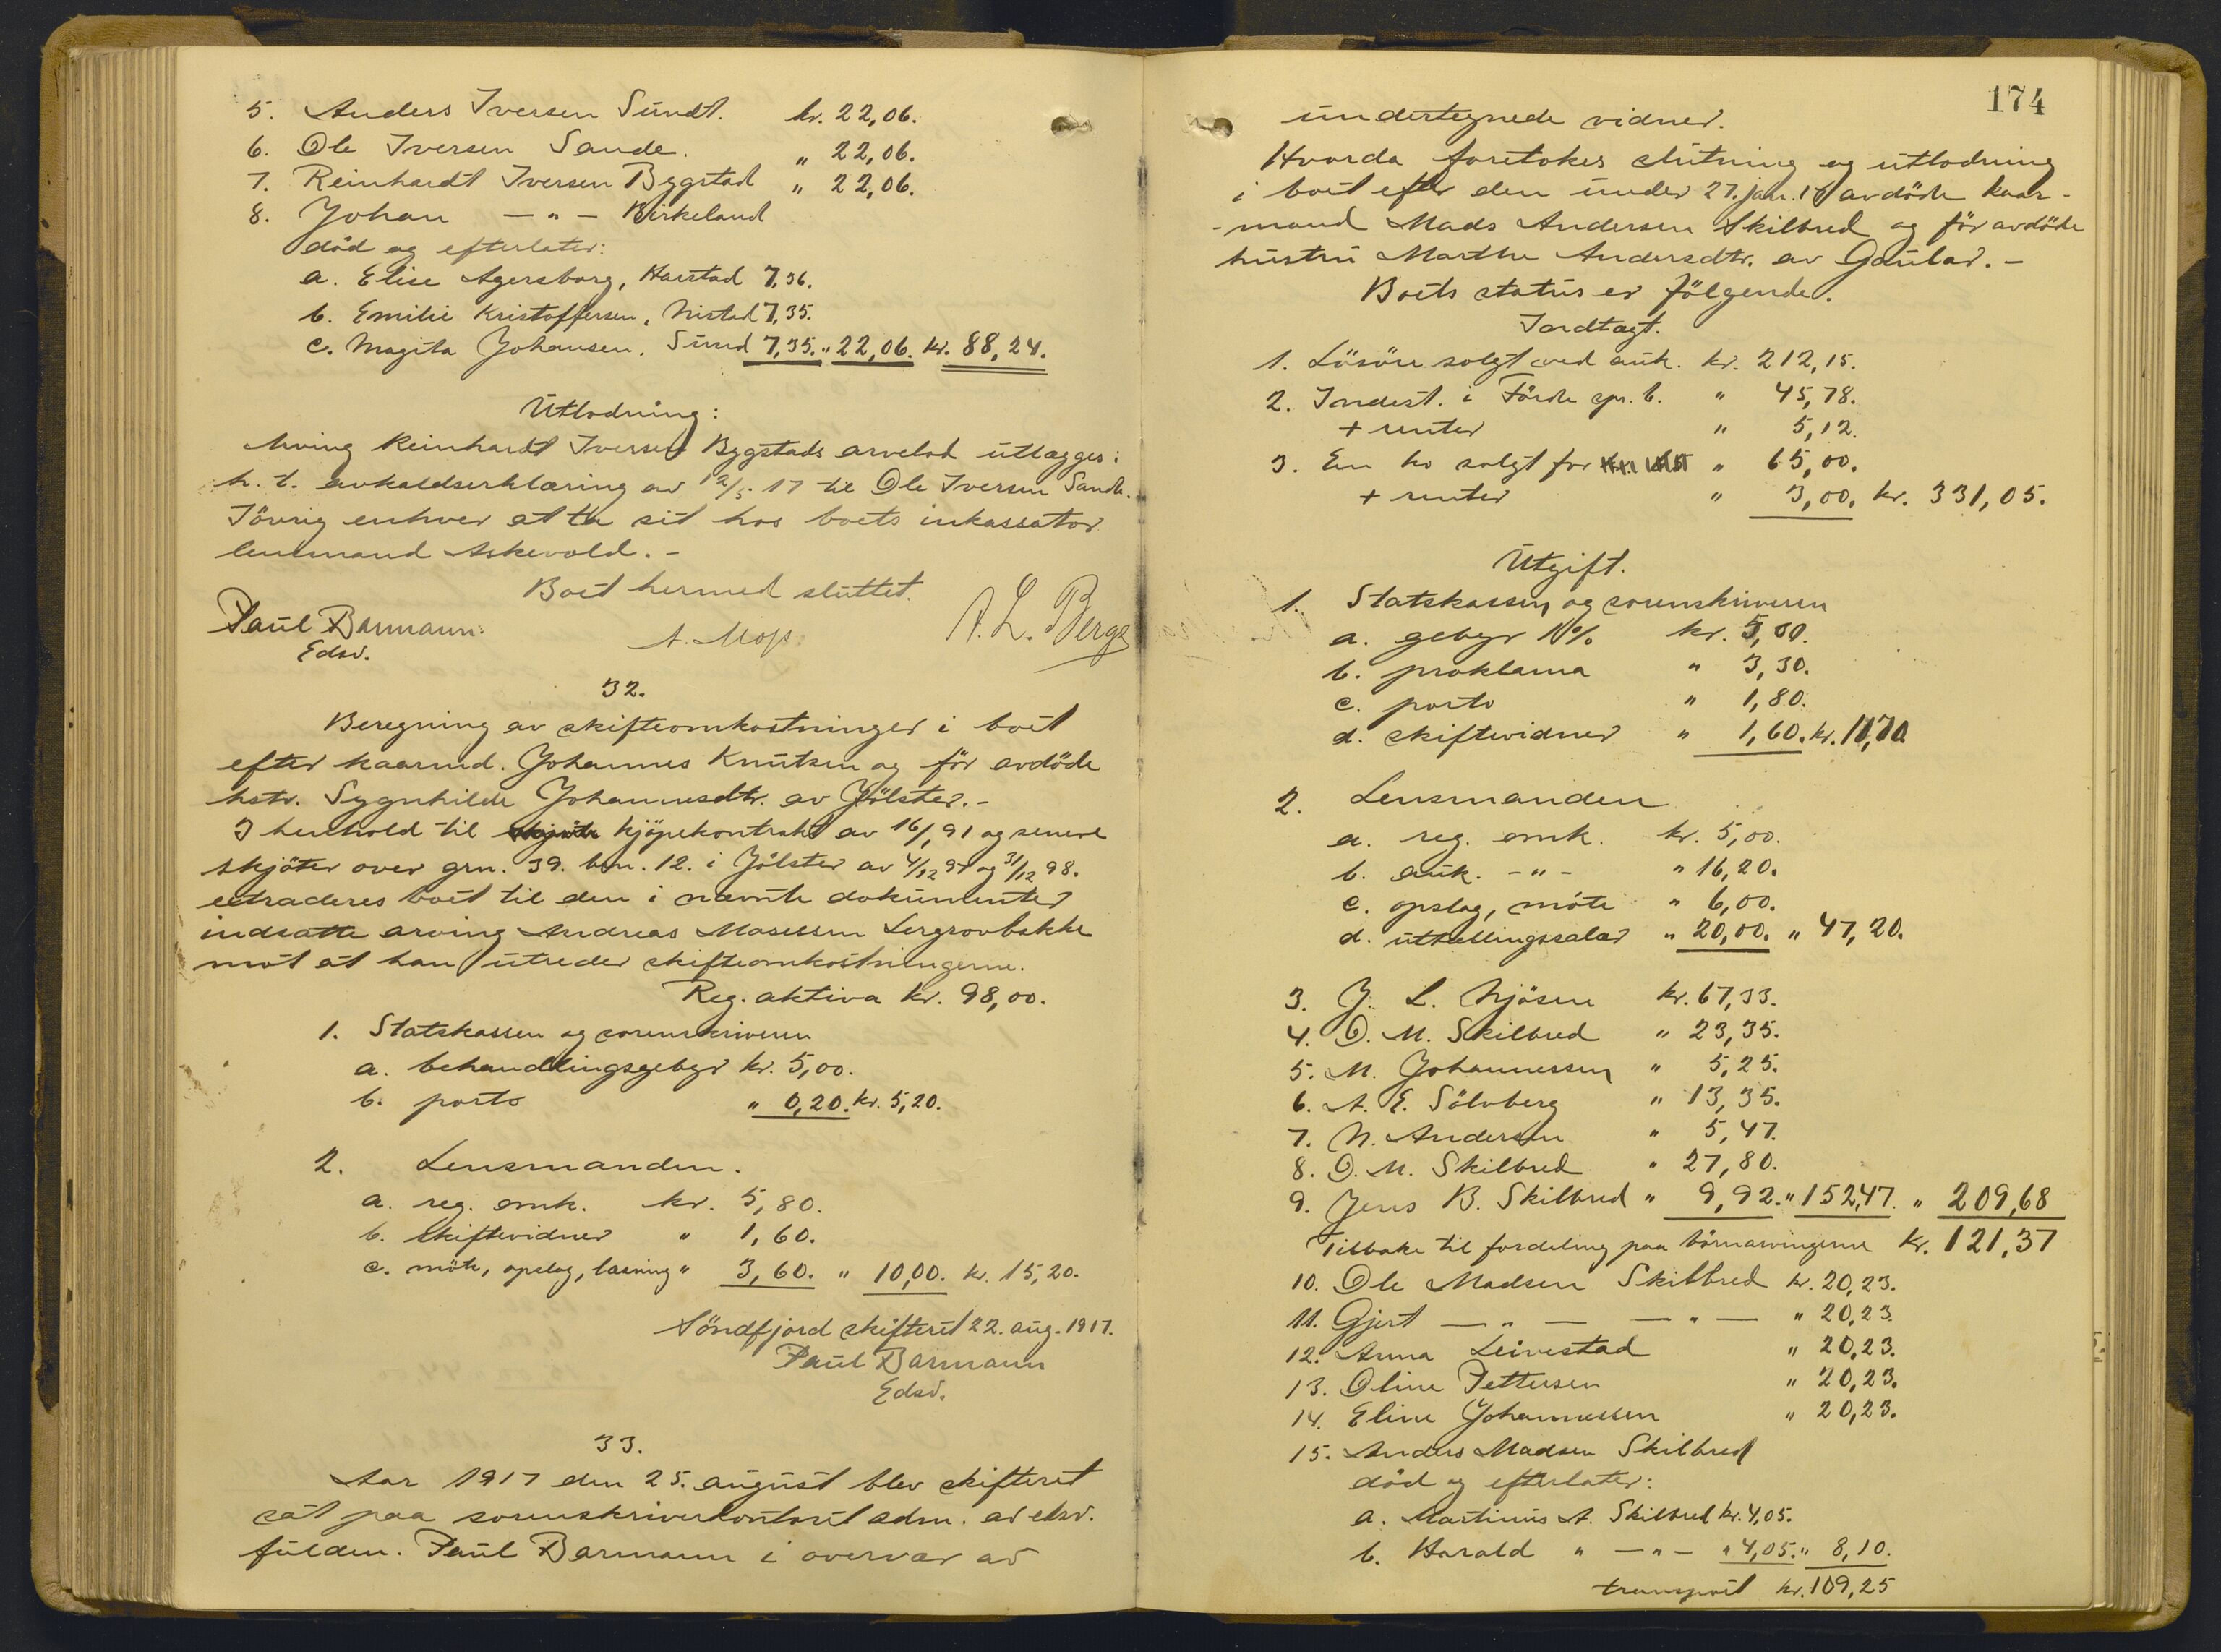 5. Anders Iversen Sundt. kr. 22,06.
6. Ole Iversen Sande. " 22,06.
7. Reinhardt Iversen Bygstad " 22,06.
8. Johan — " — Birkeland
död og efterlater:
a. Elise Agersborg, Harstad 7,36.
b. Emilie Kristoffersen, 7,35.
c. Magita Johansen, Sund 7,35. " 22,06. kr. 88,24.
Utlodning:
Arving Reinhardt Iversen Bygstads arvelod utlægges i
h. t. avkaldserklæring av 12/5. 17 til Ole Iversen Sande.
Iövrig enhver at ta sit hos boets inkassator
lensmand Askevold. -
Boet hermed sluttet.
Paul Barmann A. Mop. A. L. Berge
Edsv.
32.
Beregning av skifteomkostninger i boet
efter kaarmd. Johannes Knutsen og för avdöde
hstr. Sygnhilde Johannesdtr. av Jölster. -
I henhold til kjöpekontrakt av 16/1 91 og senere
skjöter over grn. 39. brn. 12. i Jölster av 4/12 97 og 31/12 98.
extraderes boet til den i nævnte dokumenter
indsatte arving Andreas Mosessen Lergrovbakke
mot at han utreder skifteomkostningerne.
Reg. aktiva kr. 98,00.
1. Statskassen og sorenskriveren
a. behandlingsgebyr kr. 5,00.
b. porto " 0,20. kr. 5,20.
2. Lensmanden.
a. reg. omk. kr. 5,80.
b. skiftevidner " 1,60.
c. möte, opslag, læsning " 3,60. " 10,00. kr. 15,20.
Söndfjord skifteret 22. aug. 1917.
Paul Barmann
Edsv.
33.
Aar 1917 den 25. august blev skifteret
sat paa sorenskriverkontoret adm. av edsv.
fuldm. Paul Barmann i overvær av
174
undertegnede vidner.
Hvorda foretokes slutning og utlodning
i boet efter den under 27. jan. 17 avdöde kaar-
-mand Mads Andersen Skilbred og för avdöde
hustru Marthe Andersdtr. av Gaular. -
Boets status er fölgende.
Indtægt.
1. Lösöre solgt ved auk. kr. 212,15.
2. Indest. i Förde spr. b. " 45,78.
+ renter " 5,12.
3. En ko solgt for " 65,00.
+ renter " 3,00. kr. 331,05.
Utgift.
1. Statskassen og sorenskriveren
a. gebyr 1% kr. 5,00.
b. proklama " 3,30.
c. porto " 1,80.
d. skiftevidner " 1,60. kr. 11,70.
2. Lensmanden
a. reg. omk. kr. 5,00.
b. auk. - " - " 16,20.
c. opslag, möte " 6,00.
d. uttællingssalær " 20,00. " 47,20.
3. J. L. Mjösen kr. 67,33.
4. O. M. Skilbred " 23,35.
5. M. Johannessen " 5,25.
6. A. E. Sölvberg " 13,35.
7. N. Andersen " 5,47.
8. O. M. Skilbred " 27,80.
9. Jens B. Skilbred " 9,92. " 152,47. " 209,68
Tilbake til fordeling paa börnarvingerne kr. 121,37
10. Ole Madsen Skilbred kr. 20,23.
11. Gjert — " — — " — " 20,23.
12. Anna Leivestad " 20,23.
13. Oline Pettersen " 20,23.
14. Eline Johannessen " 20,23.
15. Anders Madsen Skilbred
död og efterlater:
a. Martinus A. Skilbred kr. 4,05.
b. Harald " — " — " 4,05. " 8,10.
transport kr. 109,25